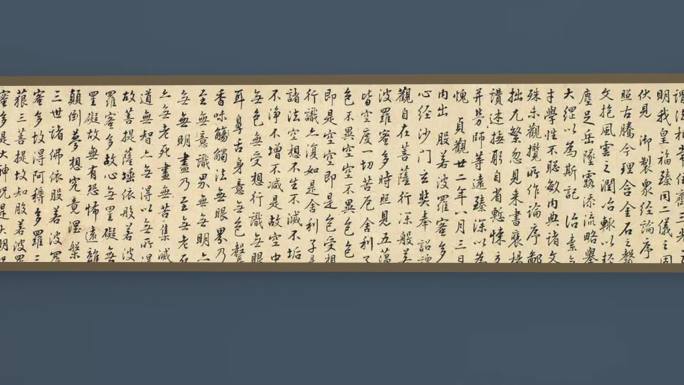 明我皇福臻同二儀之固
伏見御製衆經論序
照古騰今理含金石之聲
文抱風雲之潤治輒以輕
塵足岳墜露添流略舉
大綱以為斯記治素無
才學性不聰敏內典諸文
殊未觀攬所作論序鄙
拙尤繁忽見來書襃揚
讚述撫躬自省慙悚交
并勞師等遠臻深以為
愧貞觀廿二年八月三日
內出般若波羅蜜多
心經沙門玄奘奉詔譯
觀自在菩薩行深般若
波羅蜜多時照見五蘊
皆空度一切苦厄舍利子
色不異空空不異色色
即是空空即是色受想
行識亦復如是舍利子是
諸法空相不生不滅不垢
不淨不增不減是故空中
無色無受想行識無眼
耳鼻舌身意無色聲
香味觸法無眼界乃
至無意識界無無明亦
無無明盡乃至無老死
亦無老死盡無苦集滅
道無智亦無得以無所得
故菩提薩埵依般若波
羅蜜多故心無罣礙無
罣礙故無有恐怖遠離
顛倒夢想究竟涅槃
三世諸佛依般若波羅
蜜多故得阿耨多羅三
藐三菩提故知般若波羅
蜜多是大神咒是大明